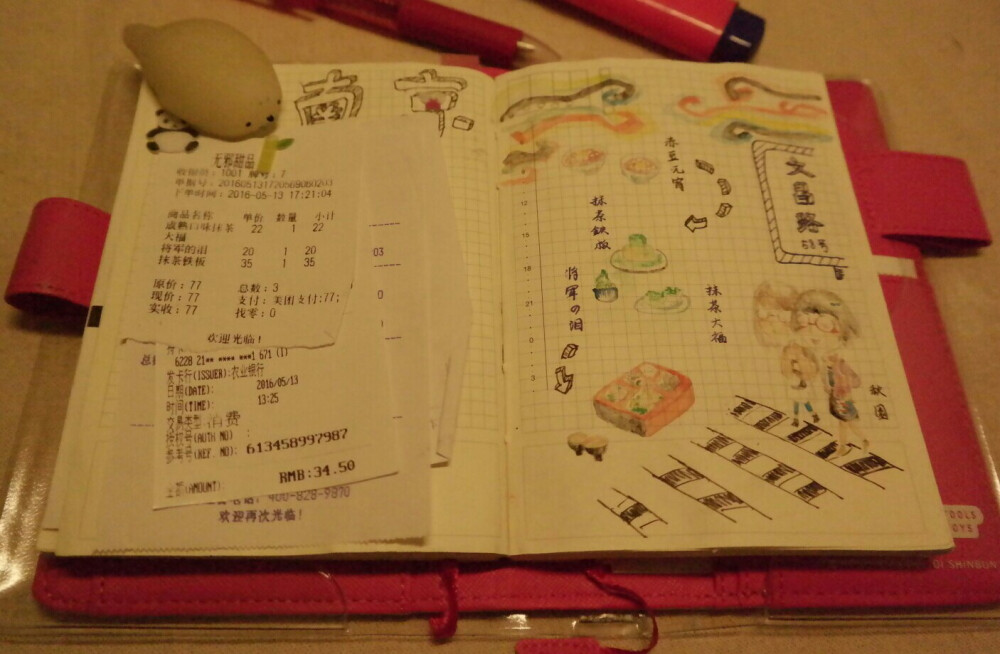 南京
无邪甜品
收银员:1001 牌号:7
单据号:
下单时间:2016-05-13 17:21:04
商品名称 单价 数量 小计
成熟口味抹茶 22 1 22
大福
将军的泪 20 1 20
抹茶铁板 35 1 35
原价:77 总数:3
现价:77 支付:美团支付:77;
实收:77 找零:0
欢迎光临!
03
0
1
6228 21** **** ***1 671 (1)
发卡行(ISSUER):农业银行
日期(DATE): 2016/05/13
时间(TIME): 13:25
交易类型 消费
授权号(AUTH NO) :
参考号(REF. NO): 613458997987
金额(AMOUNT): RMB:34.50
400-828-9870
欢迎再次光临!
文昌路
63号
赤豆元宵
抹茶鉄板
将軍の泪
抹茶大福
12
15
18
21
0
3
TOOLS
TOYS
QI SHINBUN